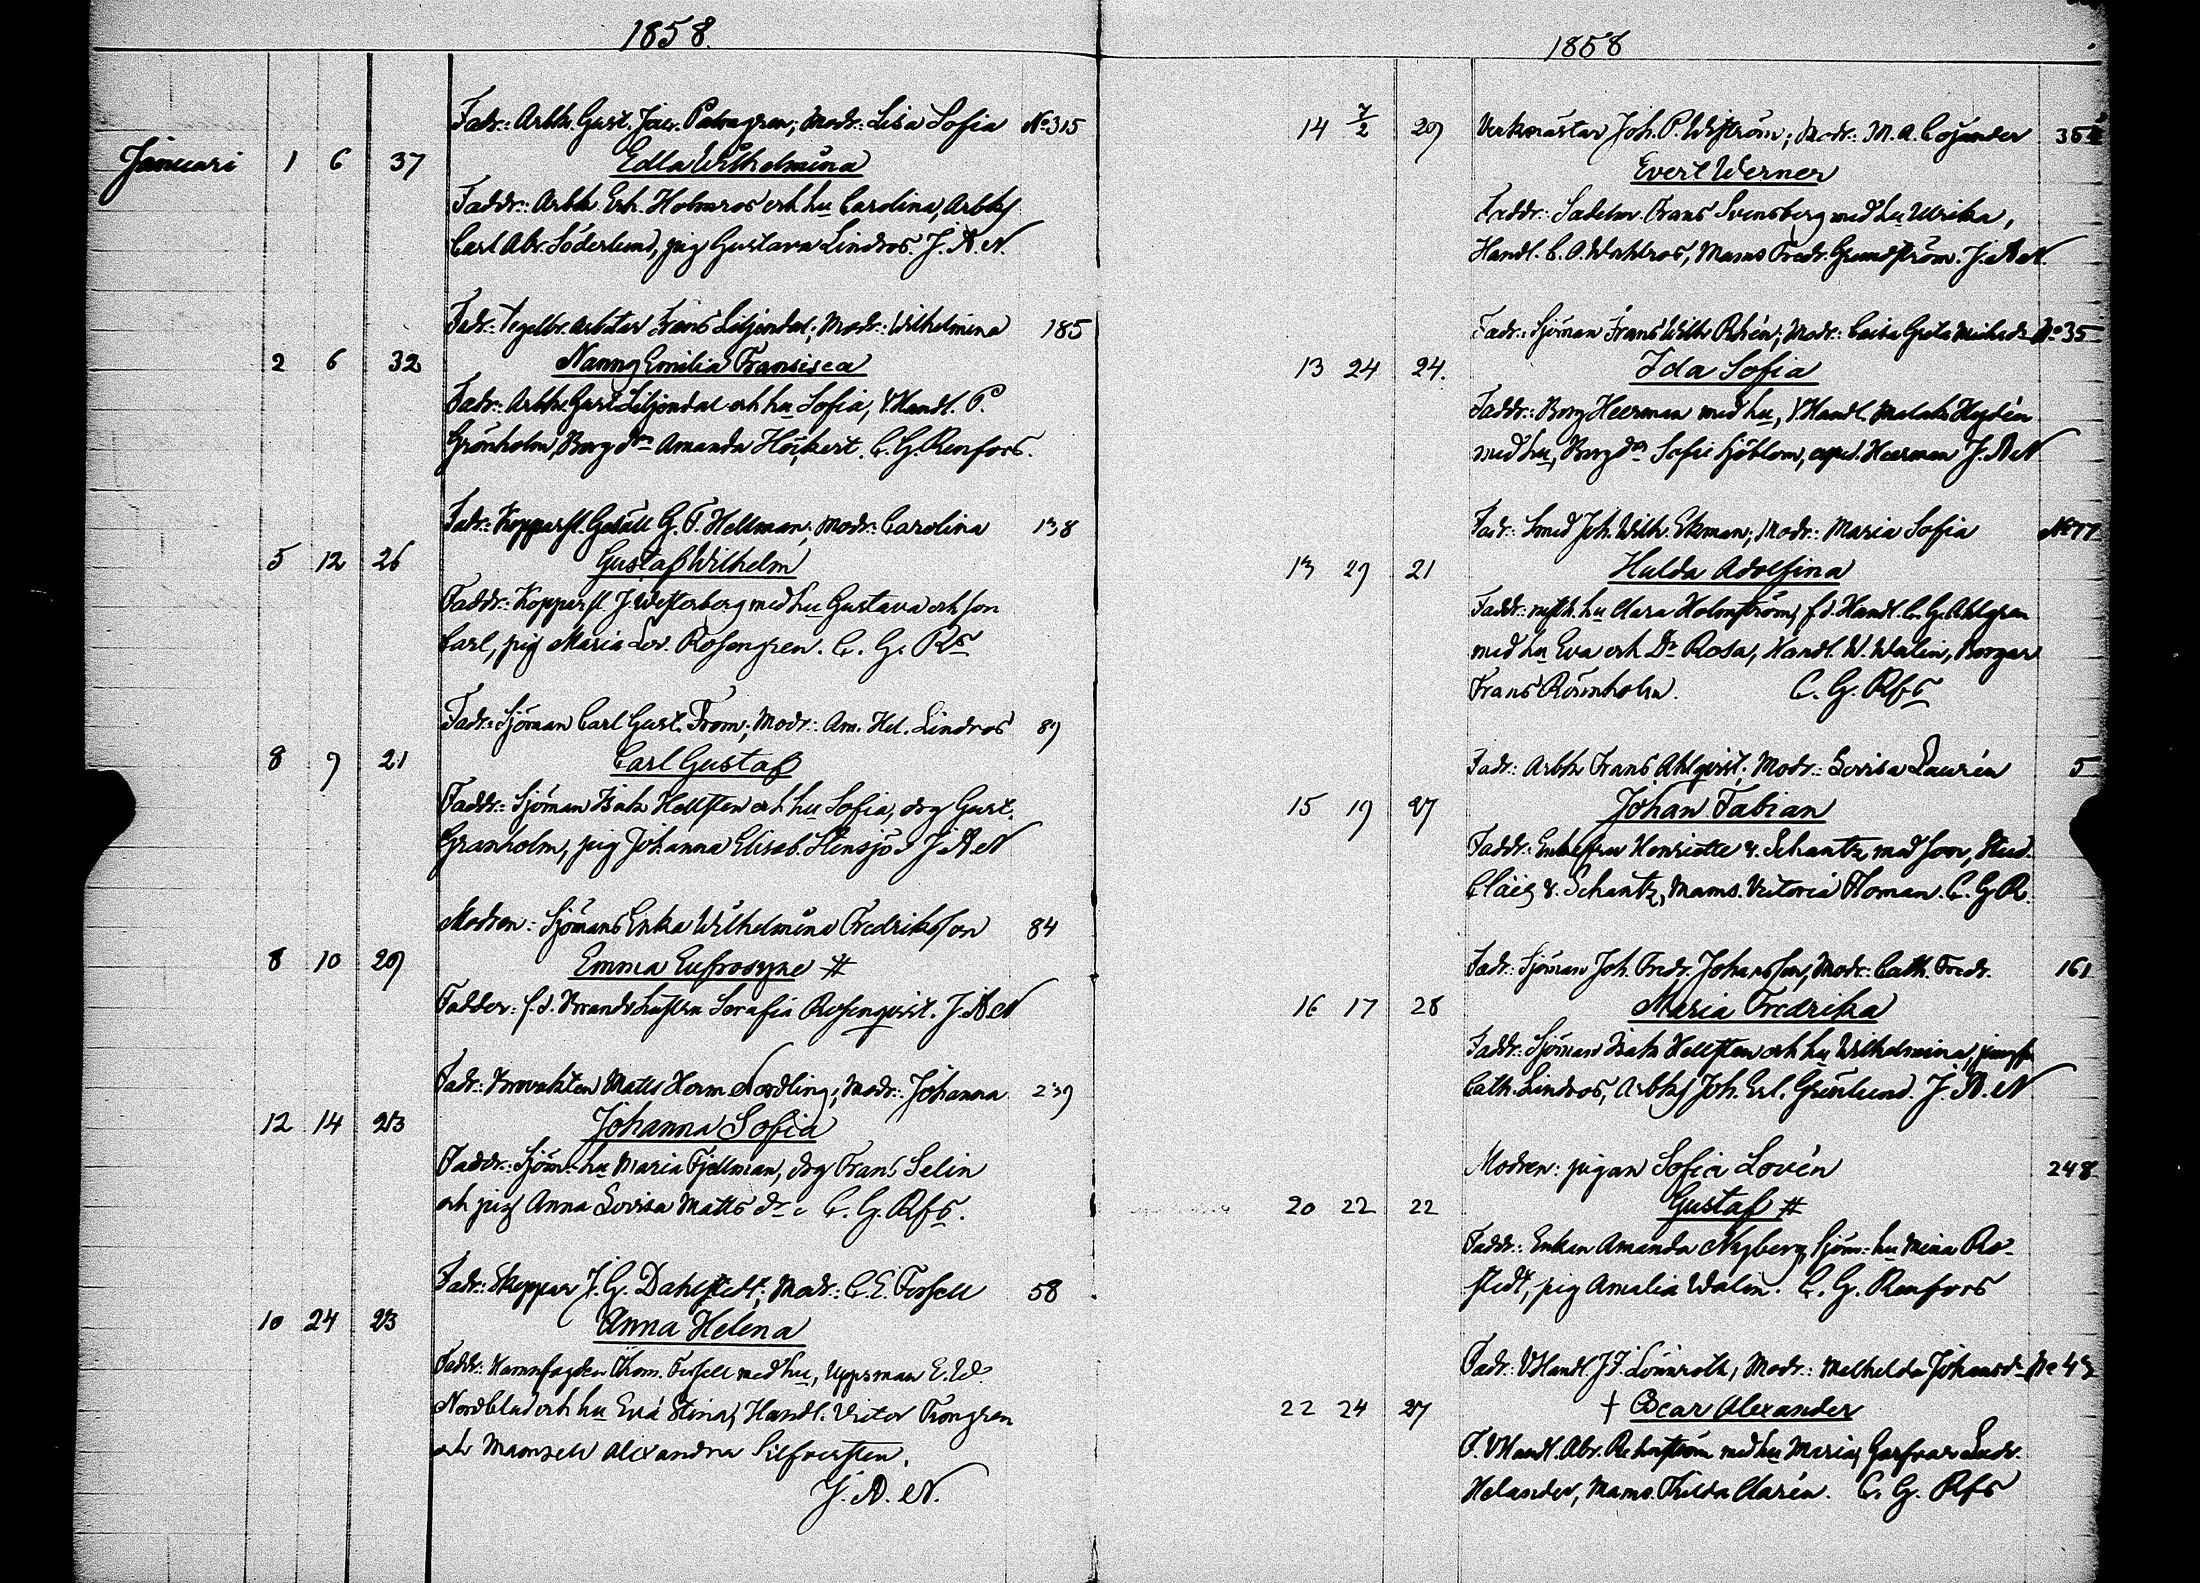 1858.
Fadr: Arbk. Gust. Jac. Palmgren; Modr: Lisa Sofia No 315
Januari 1 6 37 Edla Wilhelmina
Faddr: Arbk Erh. Holmros och hu Carolina, Arbk
Carl Abr. Söderlund, pig Gustava Lindros. J. A. N.
Fadr: Tegelbr. Arbetar Frans Liljendal; Modr: Wilhelmina 185
2 6 32 Nanny Emilia Fransisca
Fadr: Arbk Gust Liljendal och hu Sofia, V.Handl. P.
Grönholm, Borg dr Amanda Höckert. C. G. Renfors.
Fadr: Kopparsl. Gesäll G. T. Hellman; Modr: Carolina 138
5 12 26 Gustaf Wilhelm
Faddr: Kopparsl. J. Westerberg med hu Gustava och son
Carl, pig Maria Lov. Rosengren. C. G. Rs
Fadr: Sjöman Carl Gust. From; Modr: Am. Hel. Lindros 89
8 9 21 Carl Gustaf
Faddr: Sjöman Isak Hellsten och hu Sofia, drg Gust.
Granholm, pig Johanna Elisab. Stensjö J. A. N
Modren: Sjömans Enka Wilhelmina Fredriksson 84
8 10 29 Emma Eufrosyne #
Fadder: f.d. Serafia Rosenqvist. J. A. N
Fadr: Matts Herm Nordling; Modr: Johanna 239
12 14 23 Johanna Sofia
Faddr: Sjöm- hu Maria Fjellman, drg Frans Selin
och pig Anna Lovisa Matts dr C. G. Rfs.
Fadr: Skeppar J. G. Dahlstedt; Modr: C. E. Forsell 58
10 24 23 Anna Helena
Faddr: Hamnfogden Thom. Forsell med hu, Uppsman E. W.
Nordblad och hu Eva Stina, Handl. Victor Frongren
och Mamsell Alexandra Silfversten.
J. A. N.
1858
14 7/2 29 Verkmästar Joh. P. Wiström; Modr: M. A. Cojander 354
Evert Werner
Faddr: Sadelm. Frans Svensberg med hu Ulrika,
Handl. C. O. Wahlros, Mams Fredr. Grundström. J. A. N.
Fadr: Sjöman Frans Wilh Rhén; Modr: Caisa Greta Michelsd- No 35
13 24 24. Ida Sofia
Faddr: Borg Heerman med hu, V.Handl. Malakias Hydén
med hu, Borg dr Sofie Sjöblom, Heerman J. A. N
Fadr: Smed Joh. Wilh. Ekman; Modr: Maria Sofia No 77
13 29 21 Hulda Adolfina
Faddr: hu Clara Holmström, f.d. Handl. C. G. Ahlgren
med hu Eva och Dr Rosa, Handl. W. Walin, Borgar
Frans Rönnholm. C. G. Rfs
Fadr: Arbk Frans Ahlqvist; Modr: Lovisa Laurén 5
15 19 27 Johan Fabian
Faddr: Enkefru Henriette v. Schantz med Son, Stud.
Claës v. Schantz, Mams. Victoria Homan. C. G. R.
Fadr: Sjöman Joh. Fredr. Johansson; Modr: Cath. Fredr. 161
16 17 28 Maria Fredrika
Faddr: Sjöman Isak Hellsten och hu Wilhelmina, jungf.
Cath. Lindros, Arbk Joh. Erl. Grönlund. J. A. N
Modren: pigan Sofia Lovén 248
20 22 22 Gustaf #
Faddr: Enkan Amanda Nyberg, Sjöm- hu Mina Ro-
stedt, pig Amalia Walin. C. G. Renfors
Fadr: V.Handl J F. Lönnroth; Modr: Mathilda Johansd- No 43
22 24 27 † Oscar Alexander
F. V.Handl. Abr. Rehnström med hu Maria, Garfvar Ludv.
Helander, Mams. Thilda Clarén. C. G. Rfs